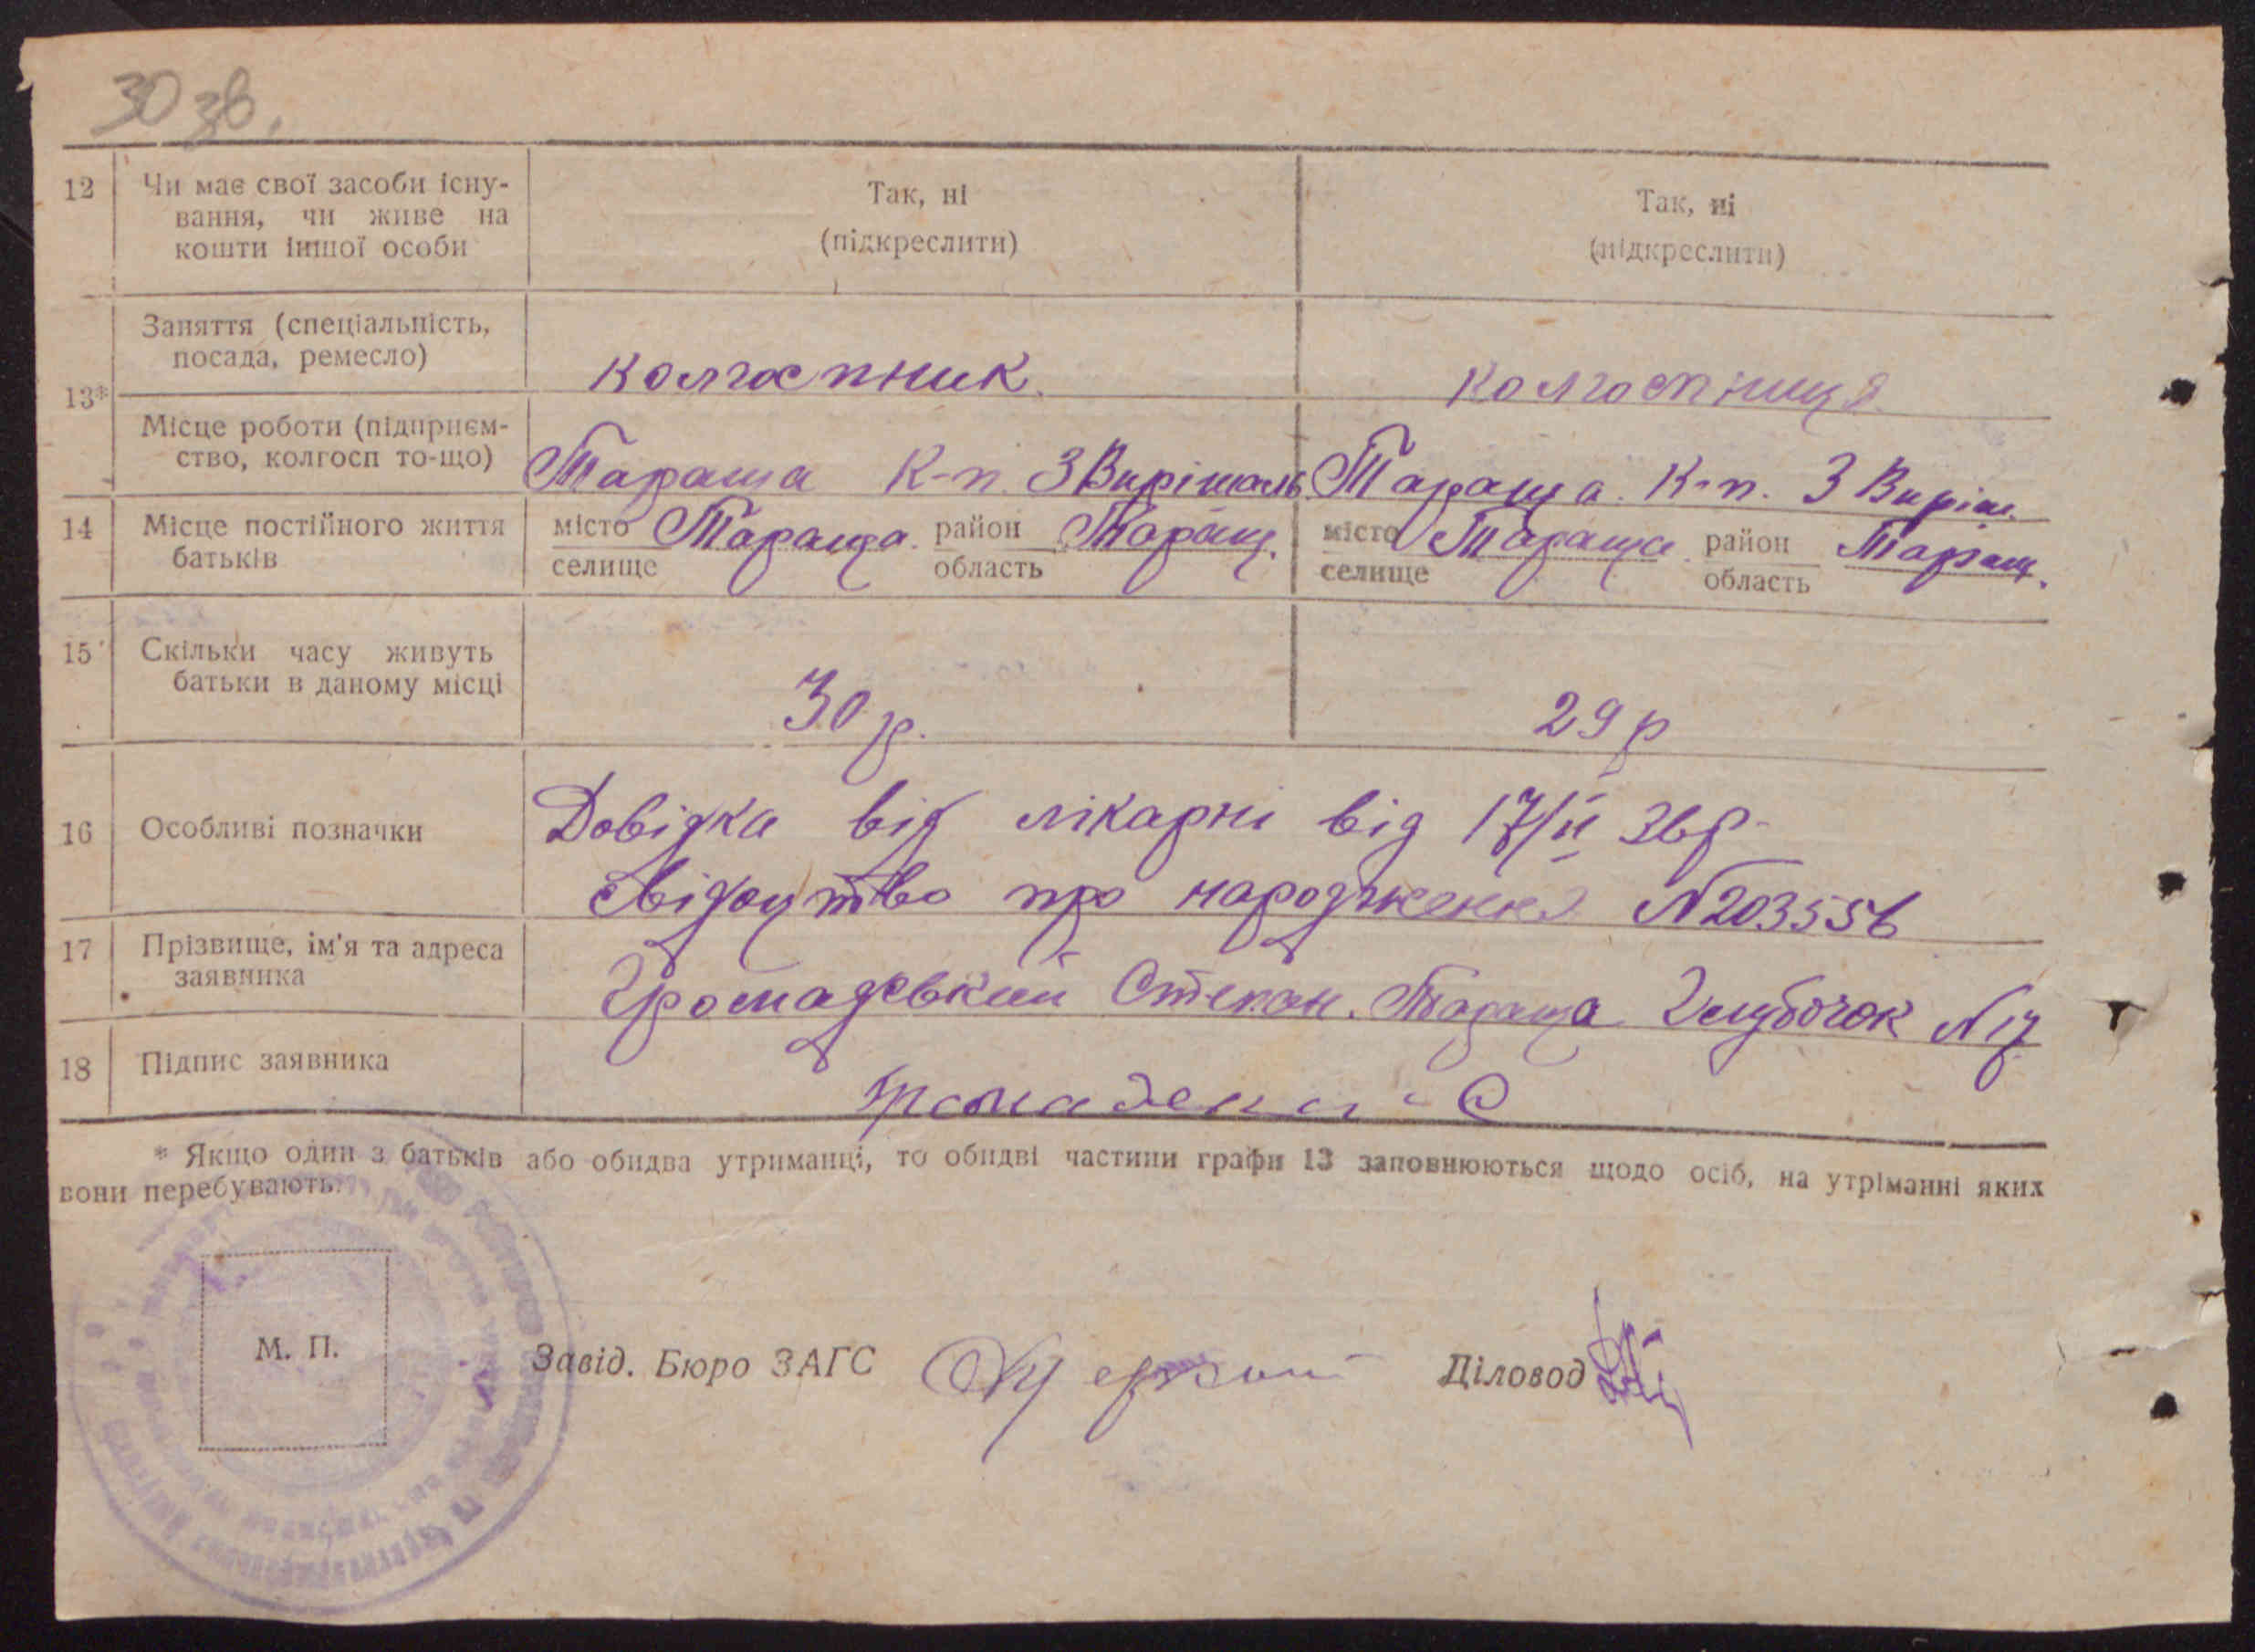 30 зв.
12 Чи має свої засоби існу- Так, ні Так, ні
вання, чи живе на (підкреслити) (підкреслити)
кошти іншої особи
13* Заняття (спеціальність,
посада, ремесло) колгоспник. колгоспниця
Місце роботи (підприєм-
ство, колгосп то-що) Тараща К-п. 3 Вирішаль. Тараща. К-п. 3 Виріш.
14 Місце постійного життя місто Тараща. район Таращ. місто Тараща район Таращ.
батьків селище область селище область
15 Скільки часу живуть
батьки в даному місці 30 р. 29 р
16 Особливі позначки Довідка від лікарні від 17/II 36р.
свідоцтво про народження N 203556
17 Прізвище, ім'я та адреса
заявника Громадський Степан. Тараща Глибочок N 17
18 Підпис заявника Громадский С
* Якщо один з батьків або обидва утриманці, то обидві частини графи 13 заповнюються щодо осіб, на утріманні яких
вони перебувають.
М. П. Завід. Бюро ЗАГС Діловод